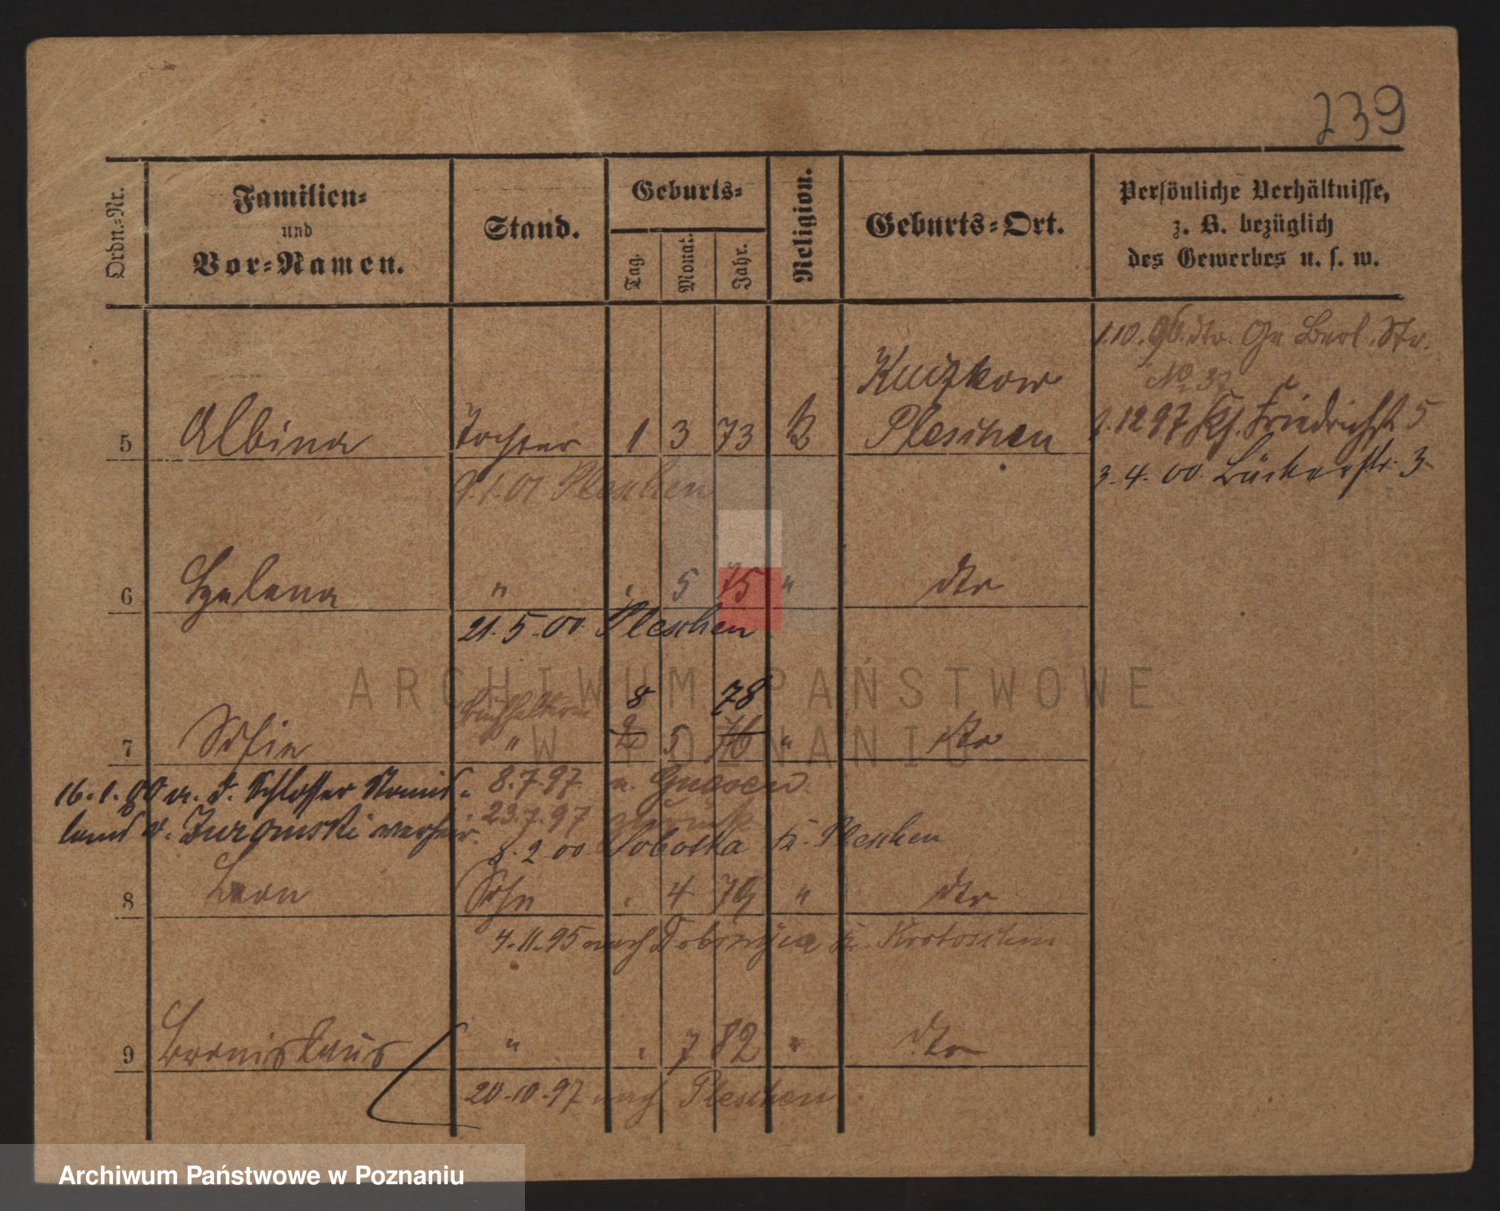 239
Ordn.-Nr.
Familien-
und
Vor-Namen.
Stand.
Geburts-
Tag.
Monat.
Jahr.
Religion.
Geburts-Ort.
Persönliche Verhältnisse,
z. B. bezüglich
des Gewerbes u. s. w.
1.10.96. dto. Gr Berl. Str.
No 37
5 Albina Tochter 1 3 73 K Kuczkow
Pleschen
1.12 97 Friedrichst 5
3.4.00 Bäckerstr. 3
9.1.01 Pleschen
6 Helena " " 5 75 " dto
21.5.00 Pleschen
8 78
7 Sofia " 2 5 76 " dto
16.1.00 a. d. Schlosser Stanis-
laus v. verheir.
8.7.97 n. Gnesen
23.7.97 zurück
2.00 Sobotka K. Pleschen
8 Leon Sohn " 4 79 " dto
4.11.95 nach Dobrzyca K. Krotoschin
9 Bronislaus " " 7 82 " dto
20.10.97 nach Pleschen
ARCHIWUM PAŃSTWOWE
W POZNANIU
Archiwum Państwowe w Poznaniu